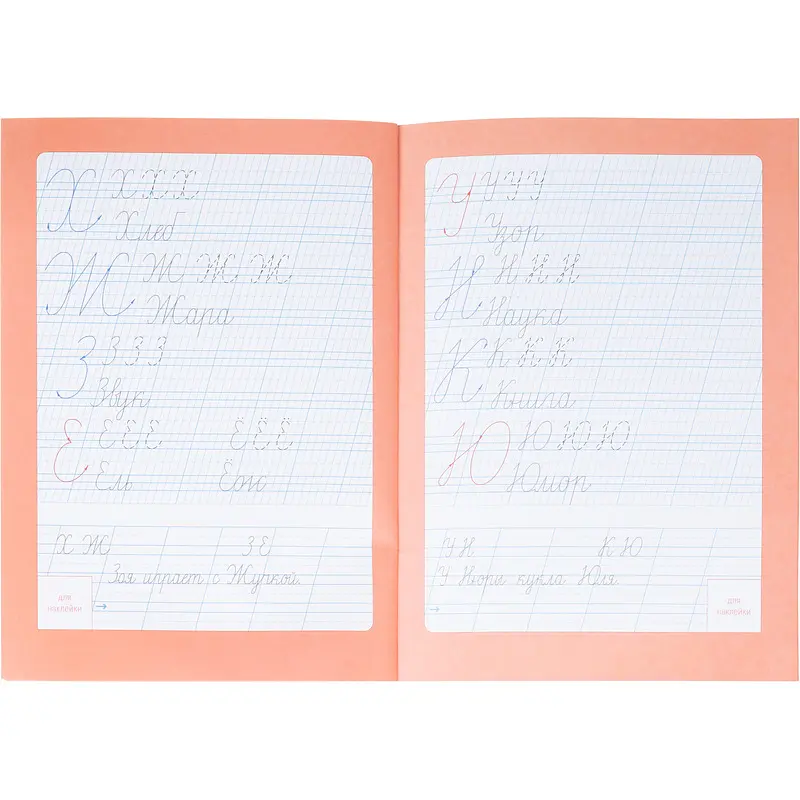 Х Х Х Х
Хлеб
Ж Ж Ж Ж
Жара
З З З З
Звук
Е Ё Ё Ё Ё Ё Ё
Ель Ёж
Х Ж З Е
Зоя играет с Жучкой.
для
наклейки
У У У У
Узор
Н Н Н Н
Наука
К К К К
Книга
Ю Ю Ю Ю
Юмор
У Н К Ю
У Нюры кукла Юля.
для
наклейки